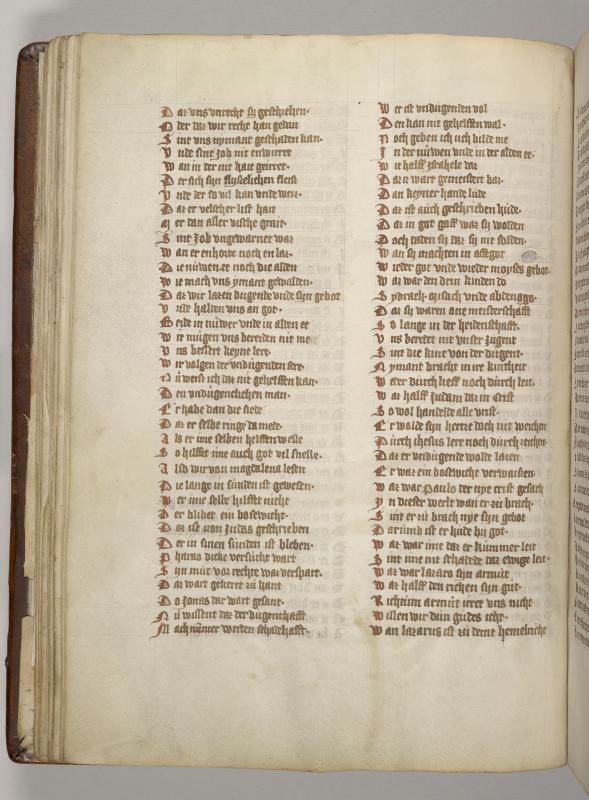 Dar vns vnrecht sij geschehen·
Oder dar wir recht han gedun
Sint vns nymant geschaden kan·
Vnde sint Job nit enwirre
Wan in der nit hait geirret·
Der sich sijn flyßelichen fleiß
Vnde der so vil kan vnde weiz·
Dar er velscher list hait
Mer dan aller vische grait·
Sint Job vngewarnet was
Wan er enhorte noch en las·
Die nuwen ee noch die alden
Wie mach vns ymant gewalden·
Dar wir laren dugende vnde sijn gebot
Vnde halden vns an got·
Beide in nuwer vnde in alden ee
Wir mugen vns bereiden nit me
Vns bessert keyne lere
Wir volgen der vndugenden sere·
Nu weiß ich daz nit gehelffen kan·
Den vndugenelichen man·
Er habe dan die siede
Dar er selbe ringe da mede·
Als er ime selben helffen welle
So hilfft ime auch got vil snelle·
Also wir von magdalena lesen
Die lange in sunden ist gewesen·
Wer ime selbe hilfft nicht
Der blibet ein bosewicht·
Dar ist von Judas geschrieben
Der in sinen sunden ist bleben·
Pharao dicke versucht wart
Sijn mut vor rechte was verspart·
Dar wart gekeret zu hant
Do Jonas dar wart gesant·
Nu wissent daz der dugenthafft
Mach nummer werden schadehafft·
Wer ist vndugenden vol
Den kan nit gehelffen wal·
Noch geben ich uch bilde me
In der nuwen vnde in der alden ee·
Wie halff Israhele daz
Dar it wart gemeistert baz·
Dan keyner hande lude
Dar ist auch geschrieben hude·
Dar in got gaff war sij wolden
Doch daden sij daz sij nit solden·
Wan sij machten in affegot
Wieder got vnde wieder moyses gebot·
War war den drin kinden do
Sydrach· misach vnde abdenago·
Dar sij waren ane meisterschafft
So lange in der heidenschafft·
Vns beredet nit vnser Jugent
Sint die kint von der dugent·
Nymant bracht in ire kintheit
Weder durch lieff noch durch leit·
War halff Judam daz in Crist
So wol handelde alle vrist·
Er wolde sijn hertze doch nit weichen
Durch ihesus lere noch durch zeichen·
Dar er vndugende wolde lasen
Er was ein bosewicht verwassen·
War war Paulo der nye crist gesach
Yn dieser werlt wan er zu brach·
Sint er zu brach nye sijn gebot
Darumb ist er hude by got·
War war ime daz er kummer leit
Sint ime nit schadede daz ewige leit·
War war lazaro sijn armut
War halff den richen sijn gut·
Richtum armut irret vns nicht
Willen wir dun gudes icht·
Wan lazarus ist zu deme hemelriche